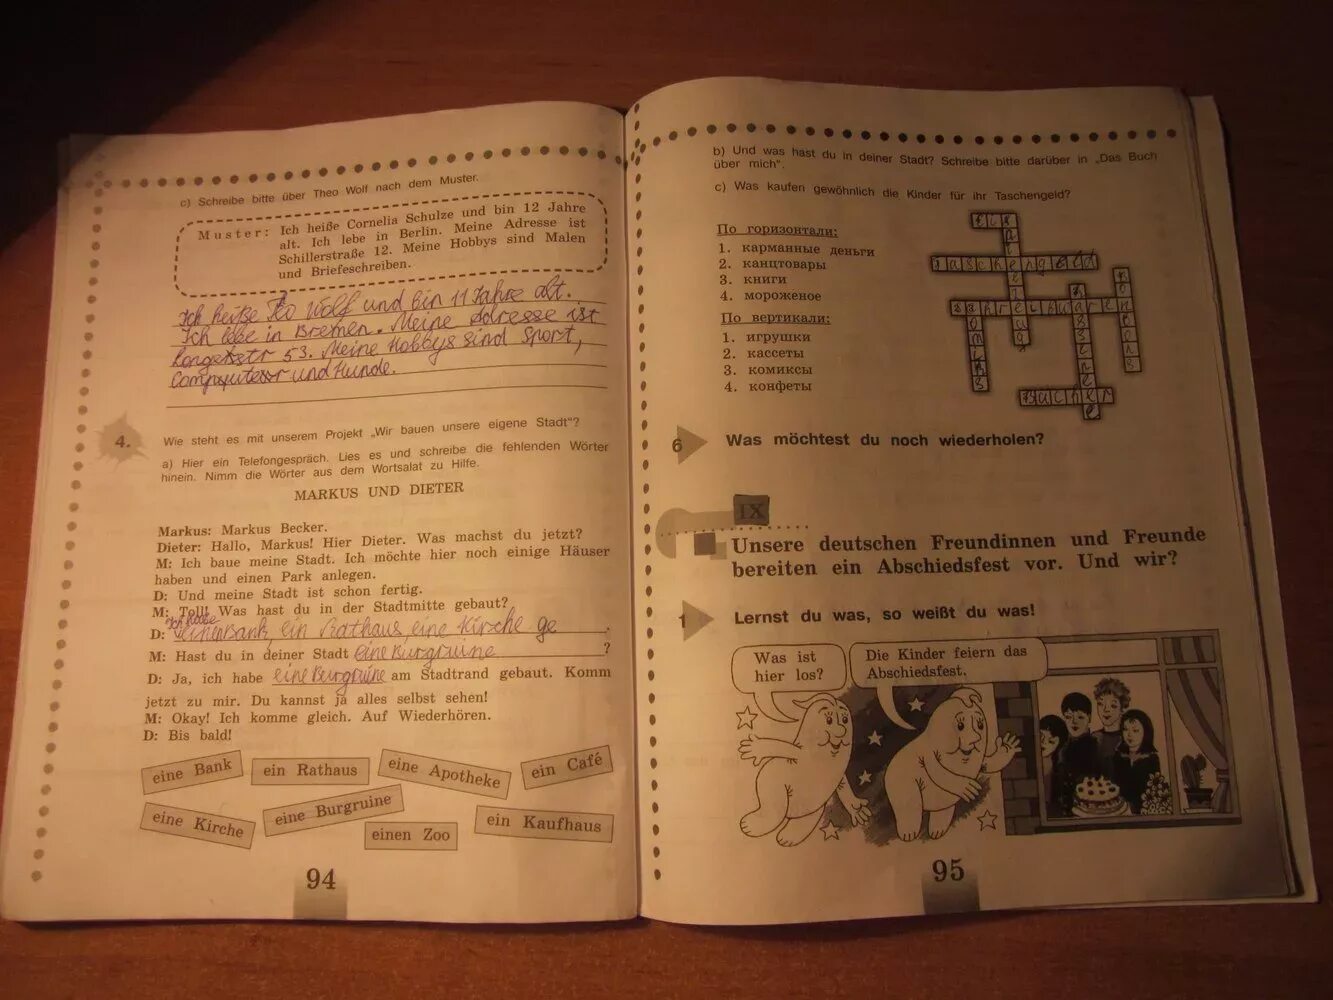 c) Schreibe bitte über Theo Wolf nach dem Muster.
Muster: Ich heiße Cornelia Schulze und bin 12 Jahre
alt. Ich lebe in Berlin. Meine Adresse ist
Schillerstraße 12. Meine Hobbys sind Malen
und Briefeschreiben.
Ich heiße Wolf und bin 11 Jahre alt.
Ich lebe in Bremen. Meine Adresse ist
53. Meine Hobbys sind Sport,
und Hunde.
4.
Wie steht es mit unserem Projekt „Wir bauen unsere eigene Stadt"?
a) Hier ein Telefongespräch. Lies es und schreibe die fehlenden Wörter
hinein. Nimm die Wörter aus dem Wortsalat zu Hilfe.
MARKUS UND DIETER
Markus: Markus Becker.
Dieter: Hallo, Markus! Hier Dieter. Was machst du jetzt?
M: Ich baue meine Stadt. Ich möchte hier noch einige Häuser
haben und einen Park anlegen.
D: Und meine Stadt ist schon fertig.
M: Toll! Was hast du in der Stadtmitte gebaut?
Ich habe
D: eine Bank, ein Rathaus, eine Kirche ge .
M: Hast du in deiner Stadt eine Burgruine ?
D: Ja, ich habe eine Burgruine am Stadtrand gebaut. Komm
jetzt zu mir. Du kannst ja alles selbst sehen!
M: Okay! Ich komme gleich. Auf Wiederhören.
D: Bis bald!
eine Bank ein Rathaus eine Apotheke ein Café
eine Kirche eine Burgruine einen Zoo ein Kaufhaus
94
b) Und was hast du in deiner Stadt? Schreibe bitte darüber in „Das Buch
über mich".
c) Was kaufen gewöhnlich die Kinder für ihr Taschengeld?
По горизонтали:
1. карманные деньги
2. канцтовары
3. книги
4. мороженое
По вертикали:
1. игрушки
2. кассеты
3. комиксы
4. конфеты
Eis
Taschengeld
Schreibwaren
Bücher
6 Was möchtest du noch wiederholen?
IX
Unsere deutschen Freundinnen und Freunde
bereiten ein Abschiedsfest vor. Und wir?
1 Lernst du was, so weißt du was!
Was ist
hier los?
Die Kinder feiern das
Abschiedsfest.
95